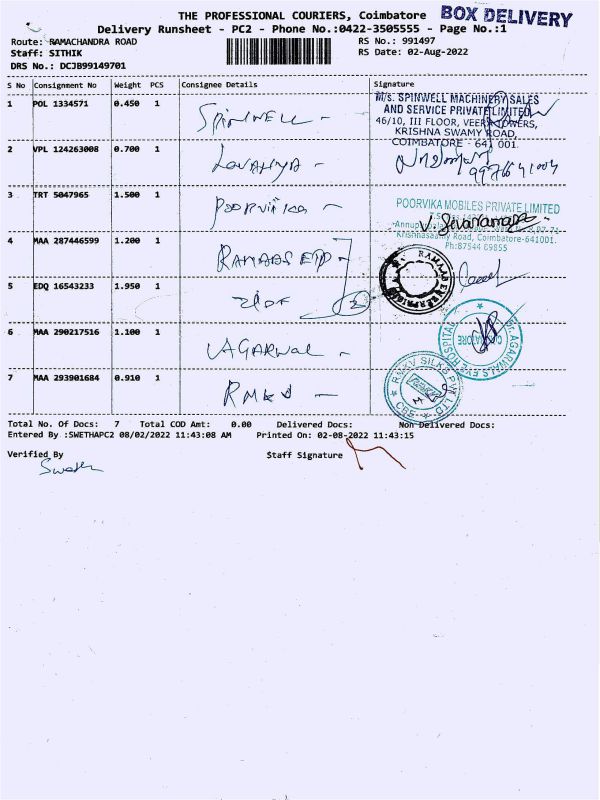 THE PROFESSIONAL COURIERS, Coimbatore BOX DELIVERY
Delivery Runsheet - PC2 - Phone No.:0422-3505555 - Page No.:1
Route: RAMACHANDRA ROAD RS No.: 991497
Staff: SITHIK RS Date: 02-Aug-2022
DRS No.: DCJB99149701
S No Consignment No Weight PCS Consignee Details Signature
1 POL 1334571 0.450 1 SPINWELL -
M/s. SPINWELL MACHINERY SALES
AND SERVICE PRIVATE LIMITED,
46/10, III FLOOR, VEER TOWERS,
KRISHNA SWAMY ROAD,
COIMBATORE - 641 001.
2 VPL 124263008 0.700 1
3 TRT 5047965 1.500 1 POORVIKA -
POORVIKA MOBILES PRIVATE LIMITED
Road, Coimbatore-641001.
4 MAA 287446599 1.200 1
5 EDQ 16543233 1.950 1
6 MAA 290217516 1.100 1 AGARWAL -
Dr. AGARWALS EYE HOSPITAL
7 MAA 293901684 0.910 1 RMKV -
RMKV SILKS PVT LTD
CBE
Total No. Of Docs: 7 Total COD Amt: 0.00 Delivered Docs: Non Delivered Docs:
Entered By :SWETHAPC2 08/02/2022 11:43:08 AM Printed On: 02-08-2022 11:43:15
Verified By Staff Signature
Swetha